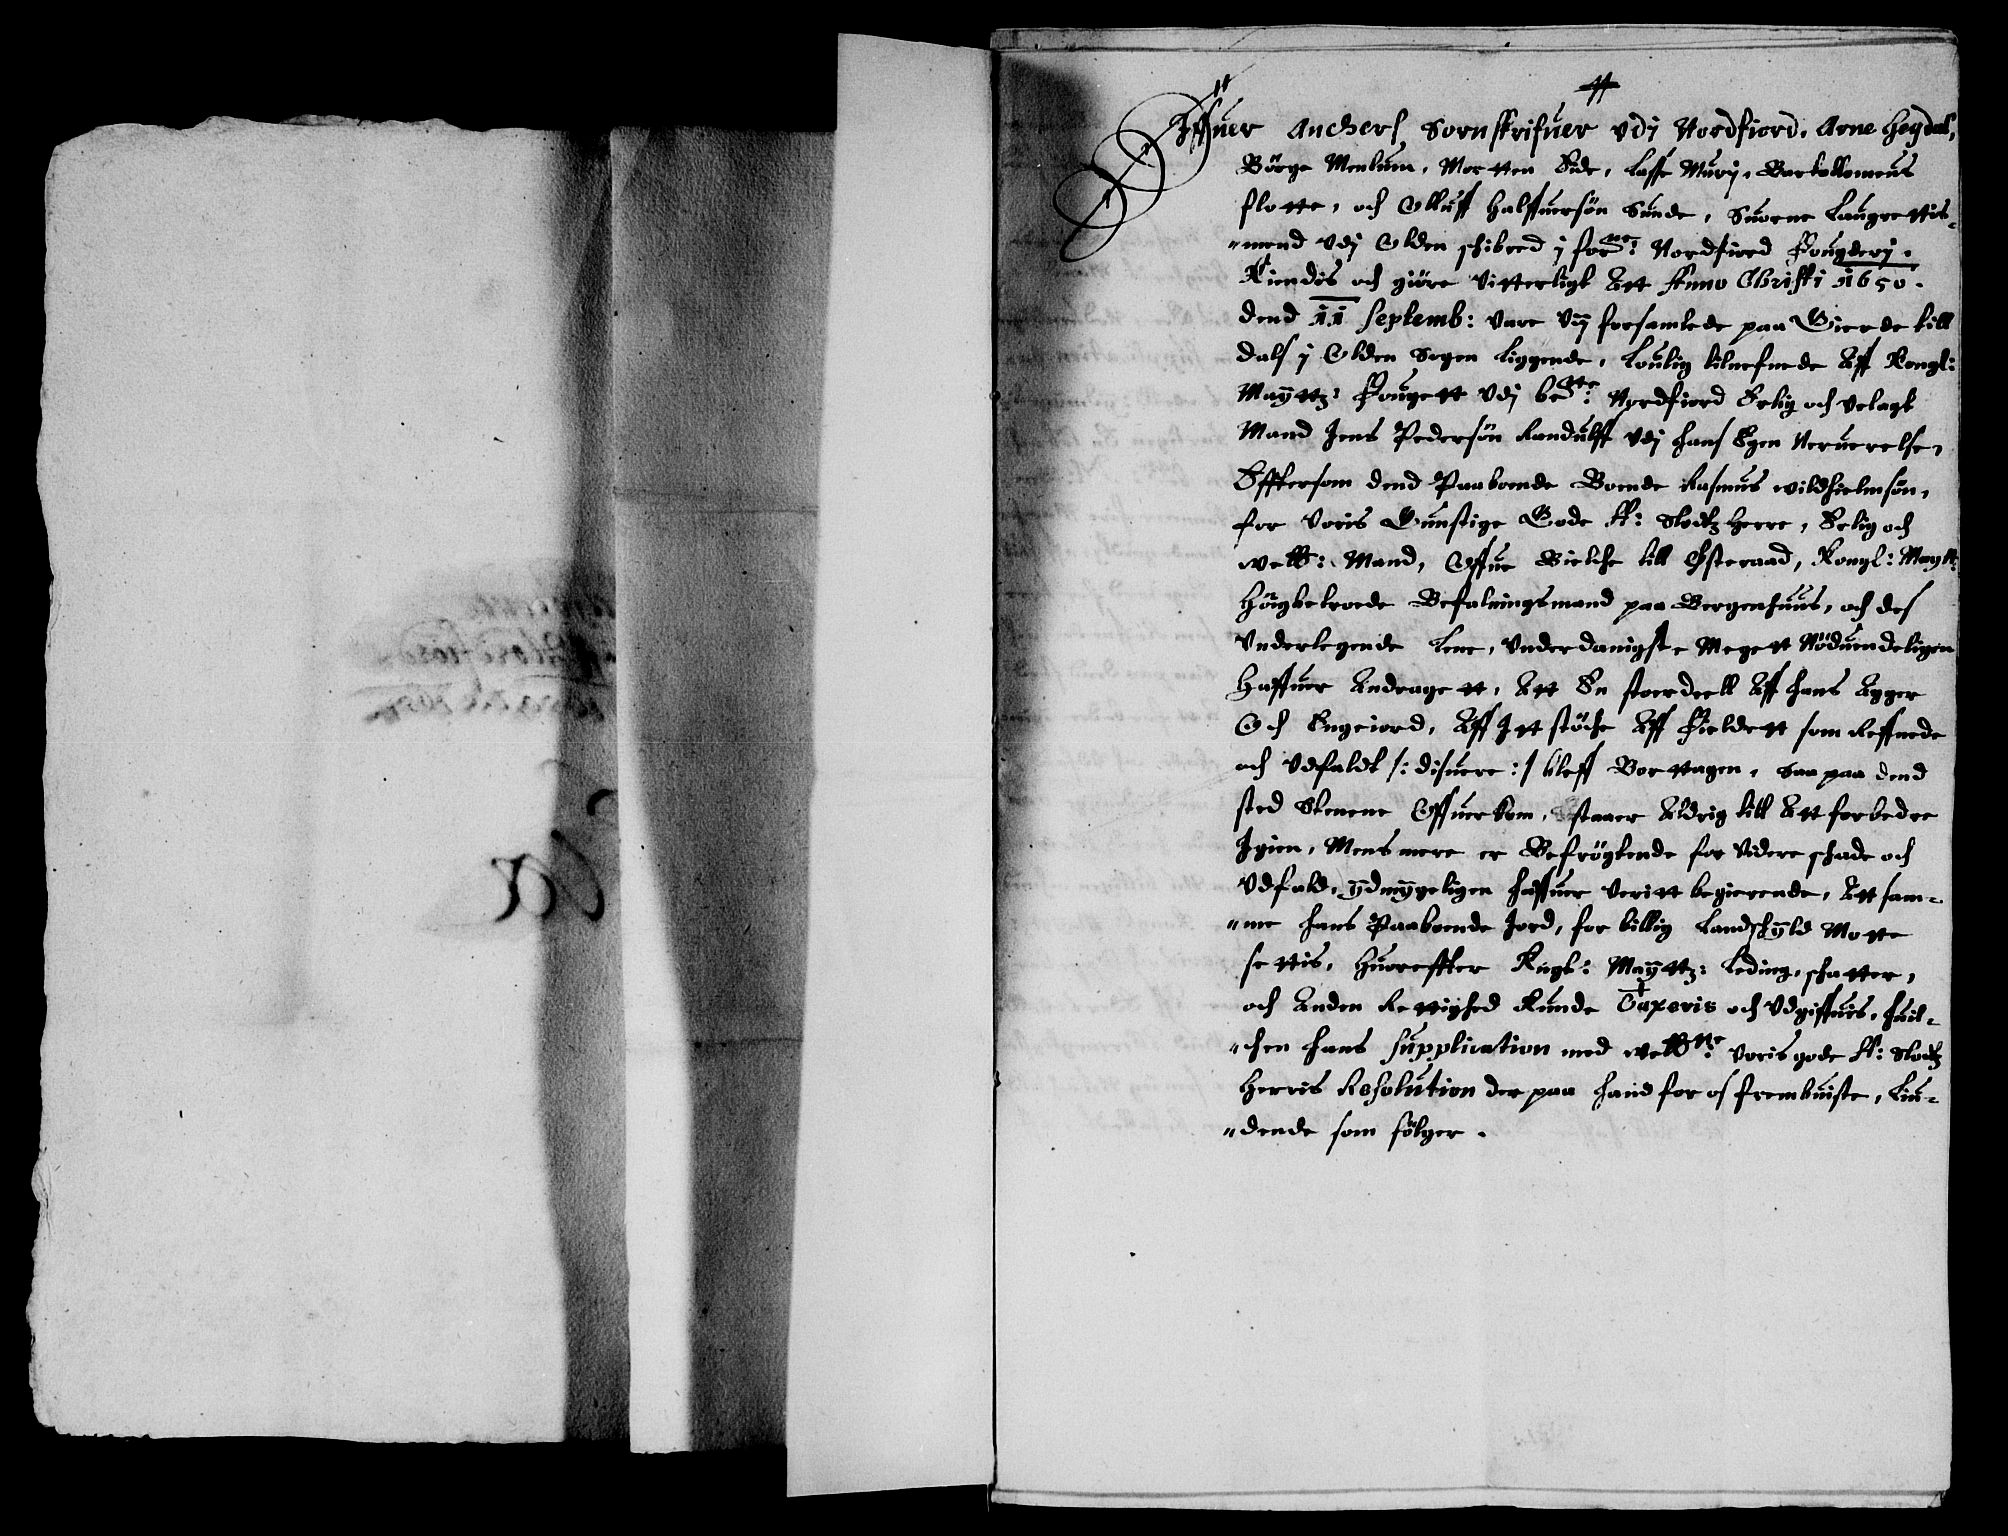 Iffuer Anchers Sornskrifuer Vdj Nordfiord, Arne Hegdal,
Börge Menlum, Morten Side, Lasse Murj, Bartollomeus
flotte, och Olluff Halffuersön Sunde, Suorne Laugrettis-
"mend Vdj Olden schibred j for^ne: Nordfiord Fougderj.
Kiendis och giöre Vitterligt Att Anno Christi 1650.
dend 11 Septemb: Vare Vij forsamlede paa Gierde till
dals j Olden Sogen liggende, Loulig tilnefnede Aff Kongl:
Maÿttz: Fougett Vdj be^te: Nordfiord Erlig och Velagt
Mand Jens Pedersön Randulff Vdj hans Egen Neruerelse,
Efftersom dend Paaboende Boende Rasmus Wildhielmsön,
for Voris Gunstige Gode H: Slodtz Herre, Erlig och
Welb: Mand, Offue Bielche till Østeraad, Kongl: Maytt:
Höigbetroede Befalningsmand paa Bergenhuus, och des
Vnderlegende Lene, Vnderdanigste Megett Nöduendeligen
Haffuer Andragett, Att En stoerdeell Aff hans Agger
Och Engeiord, Aff Itt stöche Aff Fieldett som Reffnede
och Vdfaldt /: disuere :/ bleff Borttagen, Saa paa dend
sted Stenene Offuerkom, staaer Aldrig till Att forbedre
Igien, Mens mere er Befrögtende for Videre schade och
Vdfald, ÿdmÿgeligen haffuer Veritt begierende, Att sam-
"me hans Paaboende Jord, for billig Landschÿld Motte
settis, Huorefter Kngl: Maÿttz: Leding, schatter,
och Anden Rettighed Kunde Taxeris och Vdgiffuis, huil-
"chen hans Supplication med Welb^ne: Voris gode H: Slodtz
Herris Resolution der paa hand for os frembuiste, Liu-
"dende som fölger.